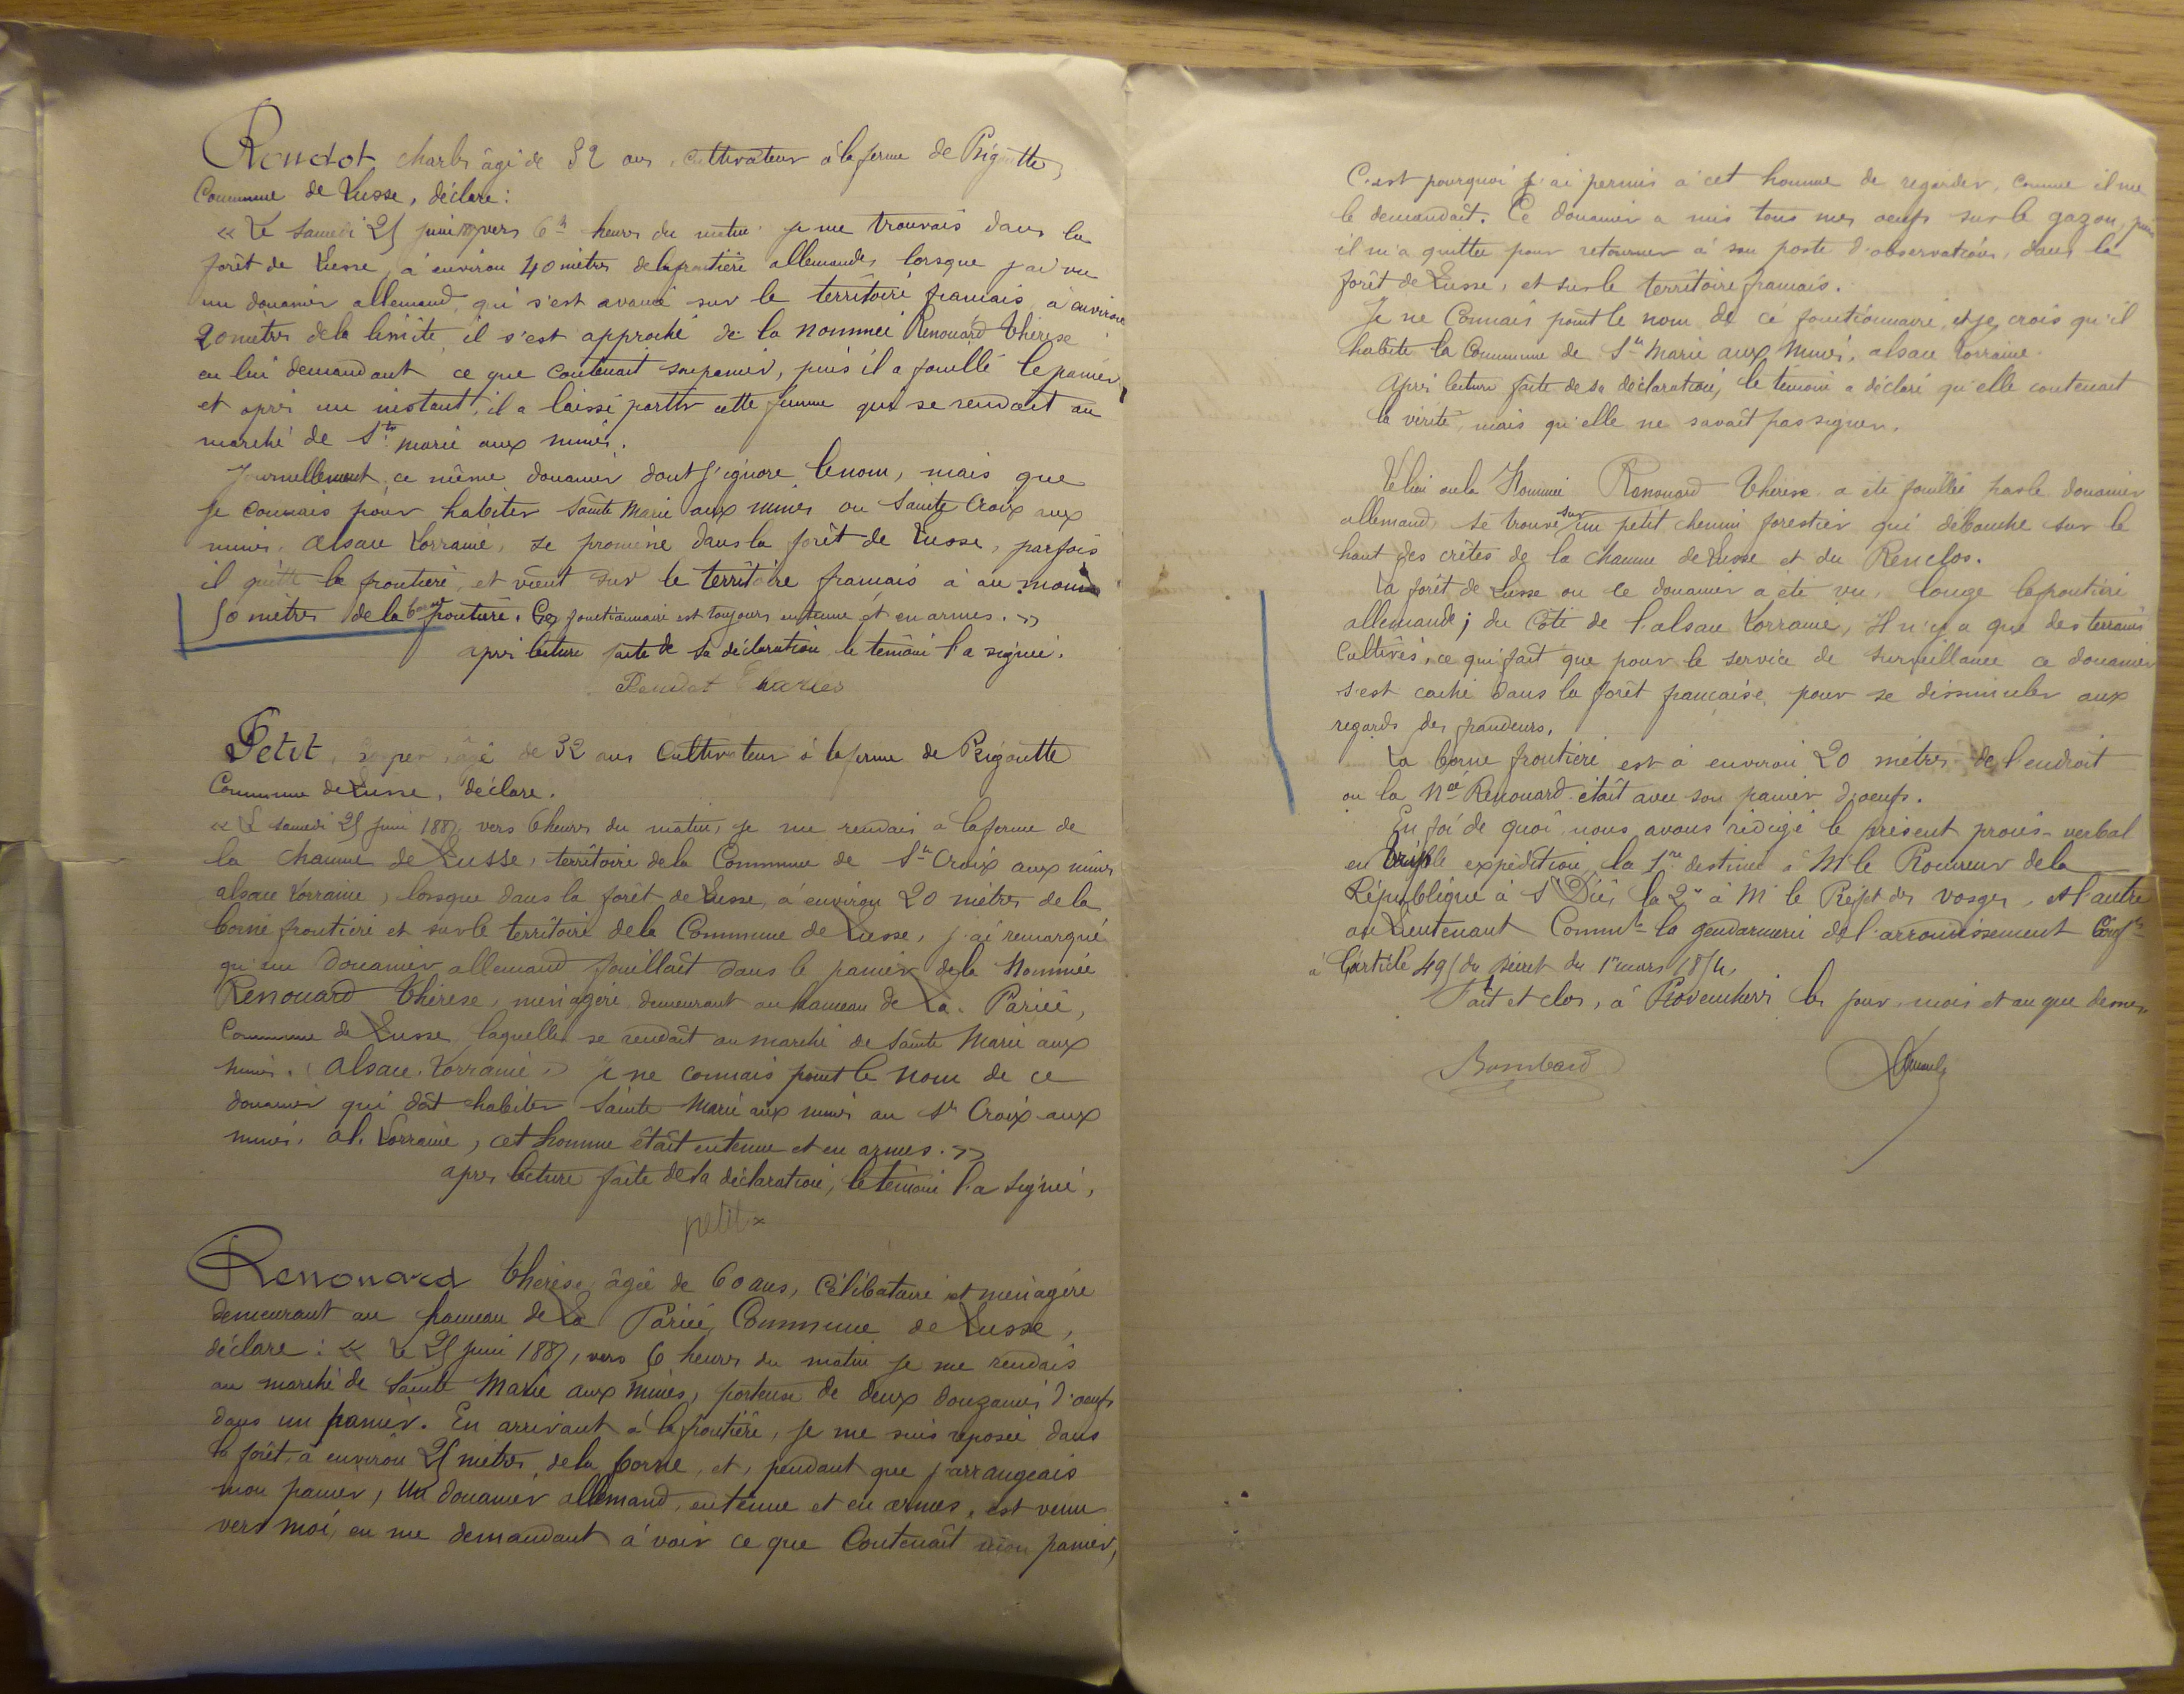 Rendot Charles âgé de 52 ans, cultivateur à la ferme de Bigoutte,
Commune de Lusse, déclare :
« Le samedi 25 juin vers 6 heures du matin je me trouvais dans la
forêt de Lusse, à environ 40 mètres de la frontière allemande, lorsque j'ai vu
un douanier allemand, qui s'est avancé sur le territoire français à environ
20 mètres de la limite, il s'est approché de la nommée Renouard Thérèse
en lui demandant ce que contenait son panier, puis il a fouillé le panier,
et après un instant, il a laissé partir cette femme qui se rendait au
marché de Ste Marie aux mines.
Journellement, ce même douanier dont j'ignore le nom, mais que
je connais pour habiter Sainte Marie aux mines ou Sainte Croix aux
mines, Alsace Lorraine, se promène dans la forêt de Lusse, parfois
il quitte la frontière, et vient sur le territoire français à au moins
50 mètres de la borne frontière. Ce fonctionnaire est toujours en tenue et en armes. »
après lecture faite de sa déclaration le témoin l'a signée.
Rendot Charles
Petit, âgé de 32 ans cultivateur à la ferme de Bigoutte
Commune de Lusse, déclare.
« Le samedi 25 juin 1887, vers 6 heures du matin, je me rendais à la ferme de
la chaume de Lusse, territoire de la Commune de Ste Croix aux mines
alsace Lorraine, lorsque dans la forêt de Lusse, à environ 20 mètres de la
borne frontière et sur le territoire de la Commune de Lusse, j'ai remarqué
qu'un douanier allemand fouillait dans le panier de la Nommée
Renouard Thérèse, ménagère demeurant au hameau de La Pariée,
Commune de Lusse, laquelle se rendait au marché de Sainte Marie aux
mines. (Alsace. Lorraine.) Je ne connais point le nom de ce
douanier qui doit habiter Sainte Marie aux mines ou Ste Croix aux
mines. al. Lorraine, cet homme était en tenue et en armes. »
après lecture faite de sa déclaration, le témoin l'a signée,
petit
Renouard Thérèse, âgée de 60 ans, Célibataire et ménagère
demeurant au hameau de La Pariée, Commune de Lusse,
déclare : « Le 25 juin 1887, vers 6 heures du matin je me rendais
au marché de Sainte Marie aux Mines, porteuse de deux douzaines d'œufs
dans un panier. En arrivant à la frontière, je me suis reposée dans
la forêt, à environ 25 mètres de la borne, et, pendant que j'arrangeais
mon panier, un douanier allemand, en tenue et en armes, est venu
vers moi, en me demandant à voir ce que contenait mon panier,
C'est pourquoi j'ai permis à cet homme de regarder, comme il me
le demandait. Ce douanier a mis tous mes œufs sur le gazon, puis
il m'a quittée pour retourner à son poste d'observation, dans la
forêt de Lusse, et sur le territoire français.
Je ne connais point le nom de ce fonctionnaire, et je crois qu'il
habite la Commune de Ste Marie aux Mines, alsace Lorraine.
Après lecture faite de sa déclaration, le témoin a déclaré qu'elle contenait
la vérité, mais qu'elle ne savait pas signer.
Le lieu où la Nommée Renouard Thérèse a été fouillée par le douanier
allemand, se trouve sur un petit chemin forestier qui débouche sur le
haut des crêtes de la chaume de Lusse et du Renclos.
La forêt de Lusse où le douanier a été vu, longe la frontière
allemande ; du côté de l'alsace Lorraine, Il n'y a que des terrains
cultivés, ce qui fait que pour le service de surveillance ce douanier
s'est caché dans la forêt française pour se dissimuler aux
regards des fraudeurs.
La borne frontière est à environ 20 mètres de l'endroit
où la née Renouard était avec son panier d'œufs.
En foi de quoi nous avons rédigé le présent procès-verbal
en triple expédition, la 1re destinée à Mr le Procureur de la
République à St Dié, la 2e à Mr le Préfet des Vosges, et l'autre
au Lieutenant Commt la gendarmerie de l'arrondissement Conft
à l'article 495 du décret du 1er mars 1854.
Fait et clos, à Provenchères les jour, mois et an que dessus.
Bombard